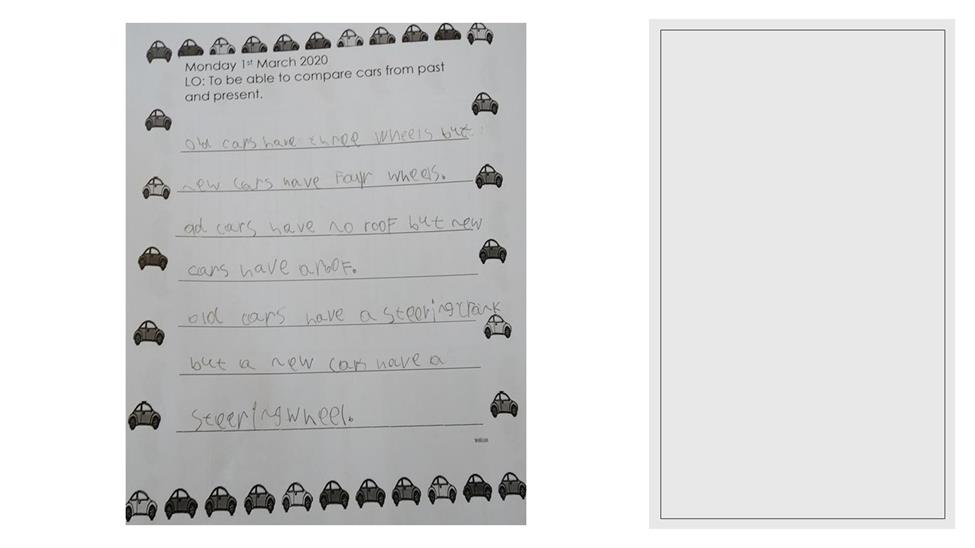 Monday 1st March 2020
LO: To be able to compare cars from past
and present.
old cars have three wheels but
new cars have four wheels.
old cars have no roof but new
cars have a roof.
old cars have a steering crank
but a new cars have a
steering wheel.